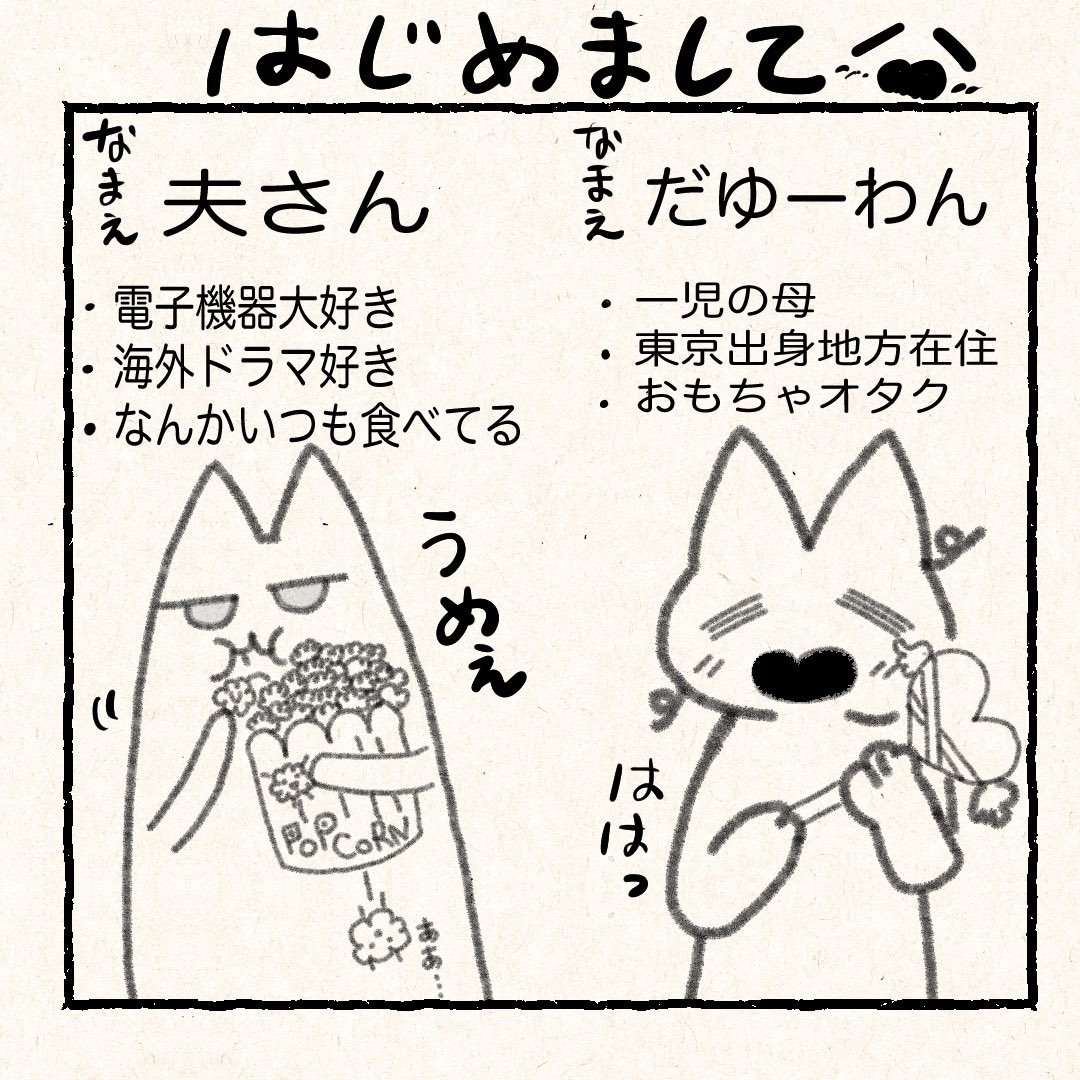 はじめまして
なまえ
夫さん
・電子機器大好き
・海外ドラマ好き
・なんかいつも食べてる
うめぇ
POPCORN
ああ…
なまえ
だゆーわん
・一児の母
・東京出身地方在住
・おもちゃオタク
ははっ